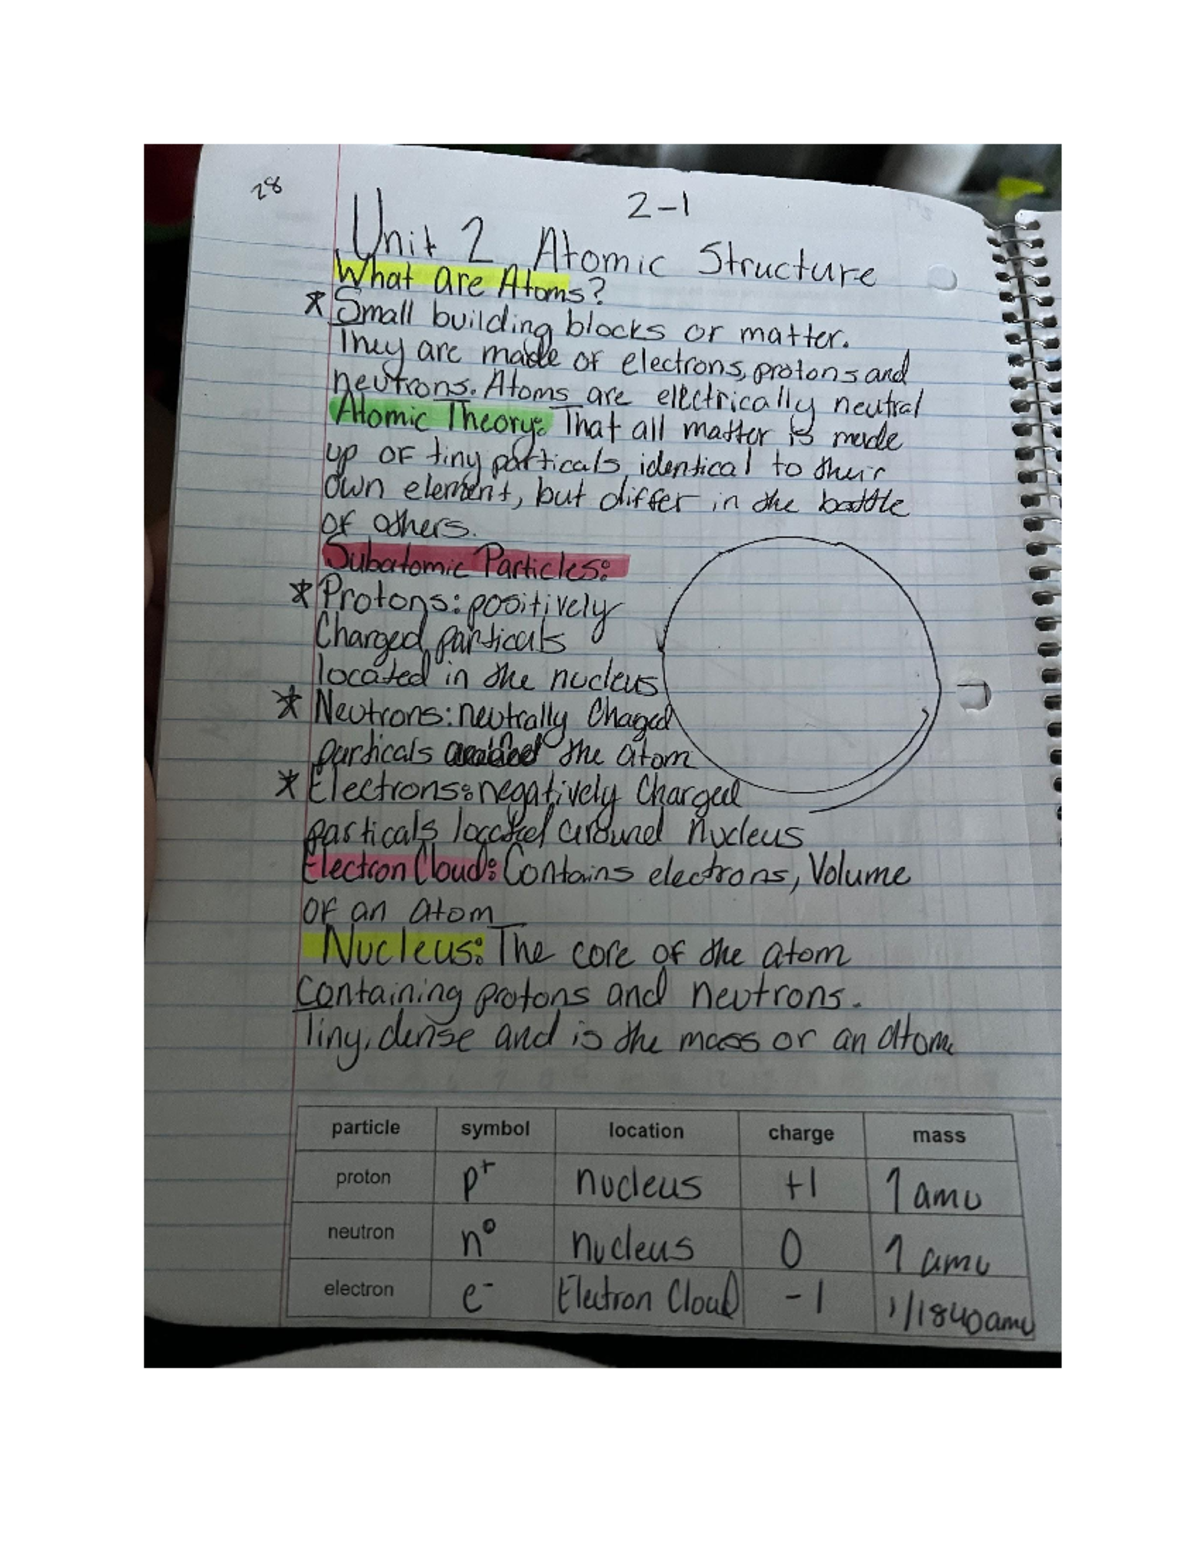 28
2-1
Unit 2 Atomic Structure
What are Atoms?
* Small building blocks or matter.
They are made of electrons, protons and
neutrons. Atoms are electrically neutral
Atomic Theory: That all matter is made
up of tiny particals identical to their
own element, but differ in the
of others.
Subatomic Particles:
* Protons: positively
Charged particals
located in the nucleus
* Neutrons: neutrally Chaged
particals the atom
* Electrons: negatively Charged
particals located around nucleus
Electron Cloud: Contains electrons, Volume
of an atom
Nucleus: The core of the atom
Containing protons and neutrons.
Tiny, dense and is the mass or an atom
particle symbol location charge mass
proton p+ nucleus +1 1 amu
neutron n° nucleus 0 1 amu
electron e- Electron Cloud -1 1/1840 amu